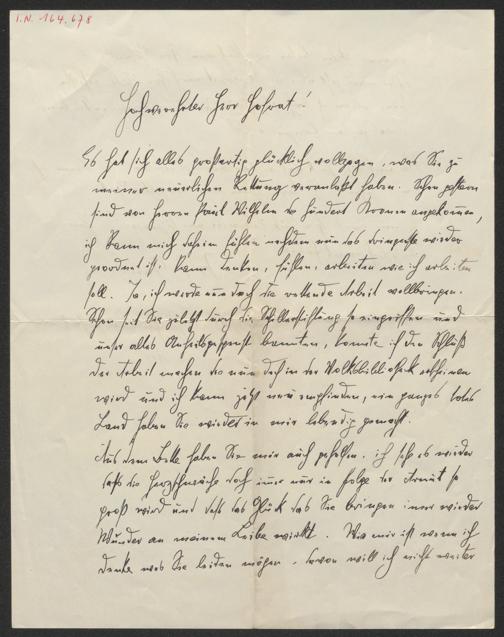 I.N. 164.678
Hochverehrter Herr Hofrat!
Es hat sich alles großartig glücklich vollzogen, was Sie zu
meiner neuerlichen Rettung veranlaßt haben. Schon gestern
sind von Herrn Wilhelm die hundert Kronen angekommen,
ich kann mich daheim fühlen nachdem nun das dringendste wieder
geordnet ist, kann denken, fühlen, arbeiten wie ich arbeiten
soll. Ja, ich werde nun doch die rettende Arbeit vollbringen.
Schon seit Sie zuletzt durch die Schillerstiftung so eingriffen und
unser altes bannten, konnte ich den Schluß
der Arbeit machen die nun doch in der Volksbibliothek erscheinen
wird und ich kann jetzt neu empfinden, ein ganzes totes
Land haben Sie wieder in mir lebendig gemacht.
Aus dem Bette haben Sie mir auch geholfen, ich sehe es wieder
daß die Herzschwäche doch immer nur in Folge der Armut so
groß wird und daß das Glück das Sie bringen immer wieder
Wunder an meinem Leibe wirkt. Wie mir ist wenn ich
denke was Sie leiden mögen, davon will ich nicht weiter